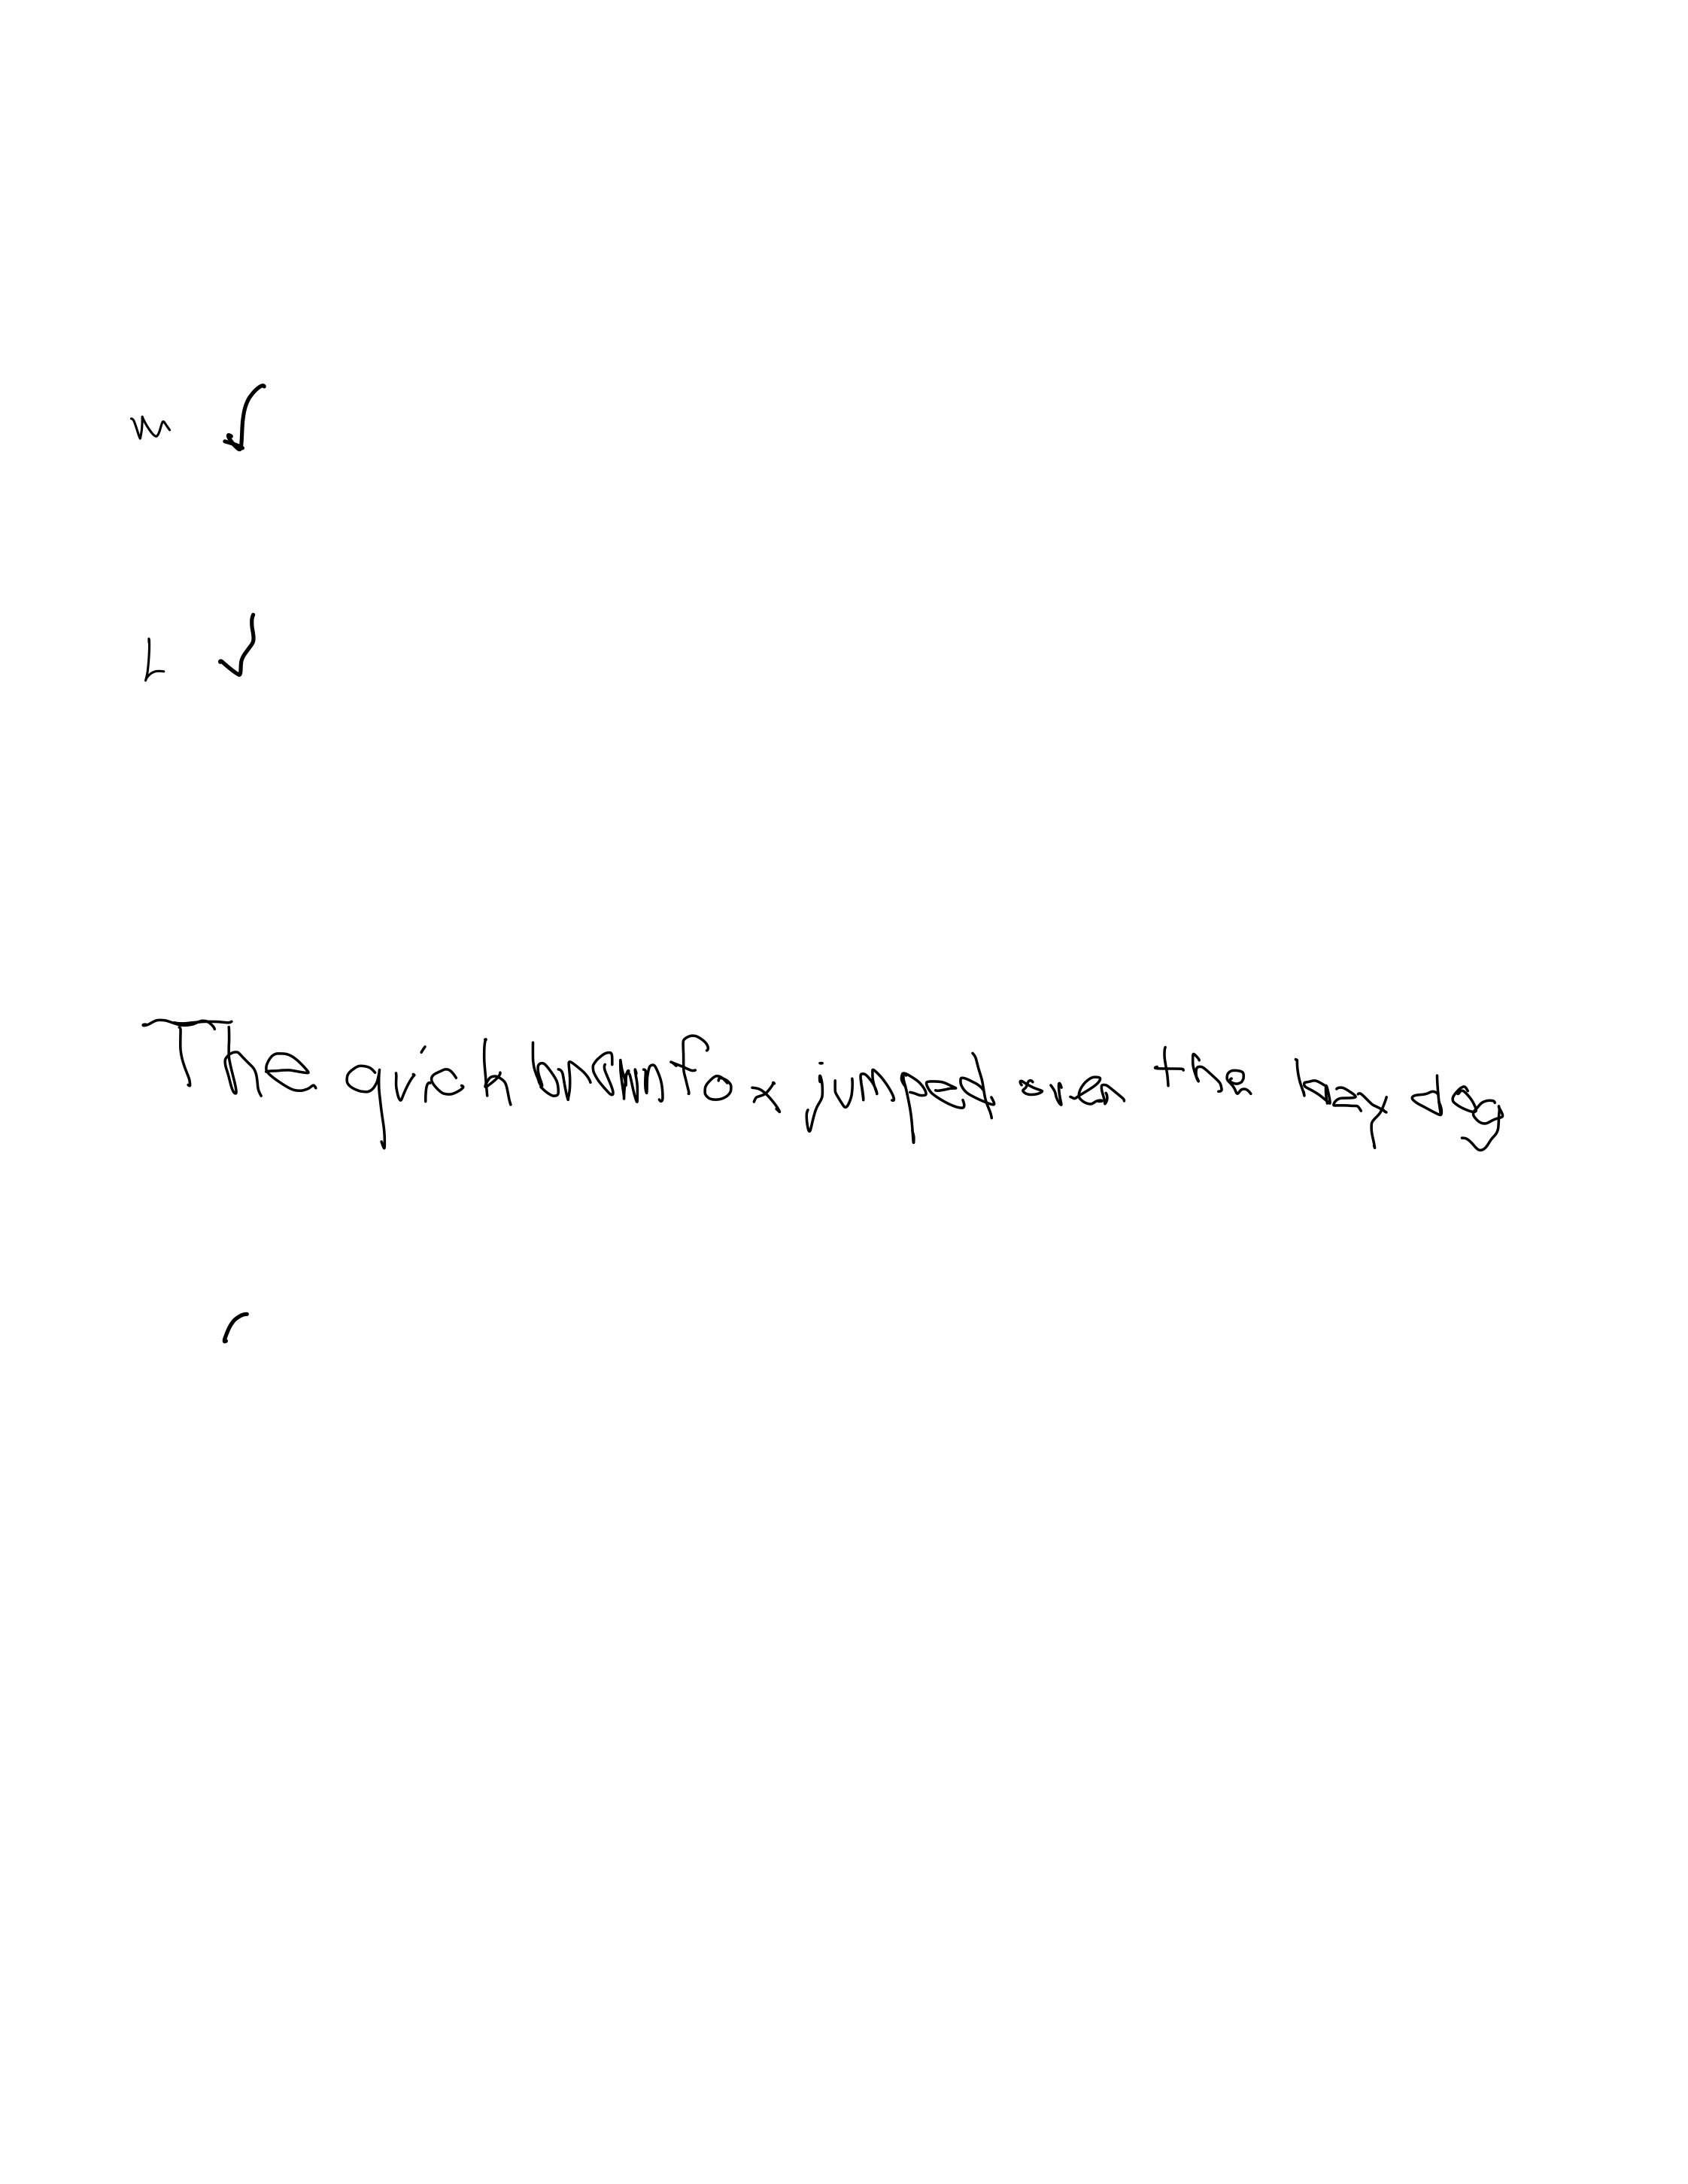 m √
L √
The quick brown fox jumped over the lazy dog